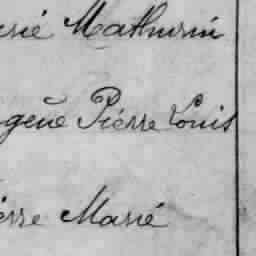 rié Mathurin
gène Pierre Louis
erre Marié